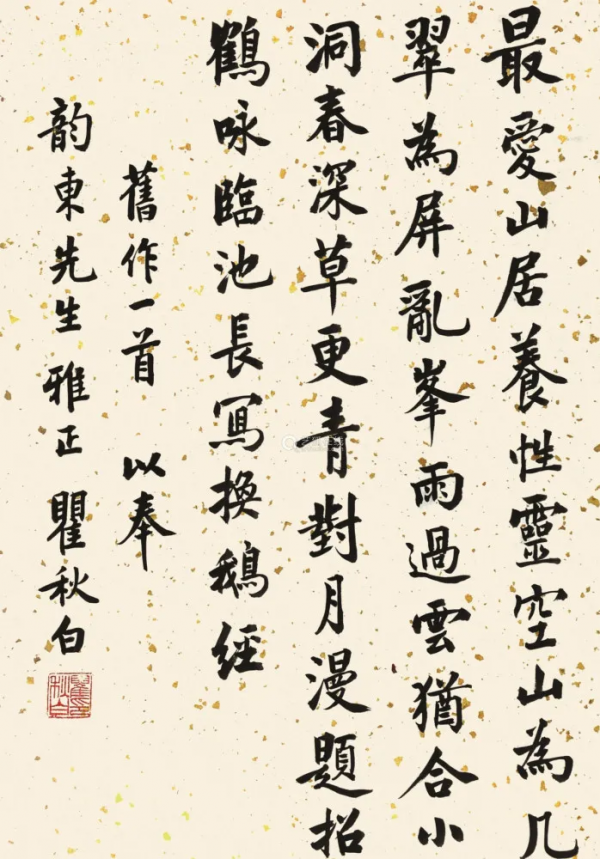 最愛山居養性靈空山為几
翠為屏亂峯雨過雲猶合小
洞春深草更青對月漫題招
鶴咏臨池長寫換鵝經
舊作一首 以奉
韵東先生雅正 瞿秋白
瞿秋白